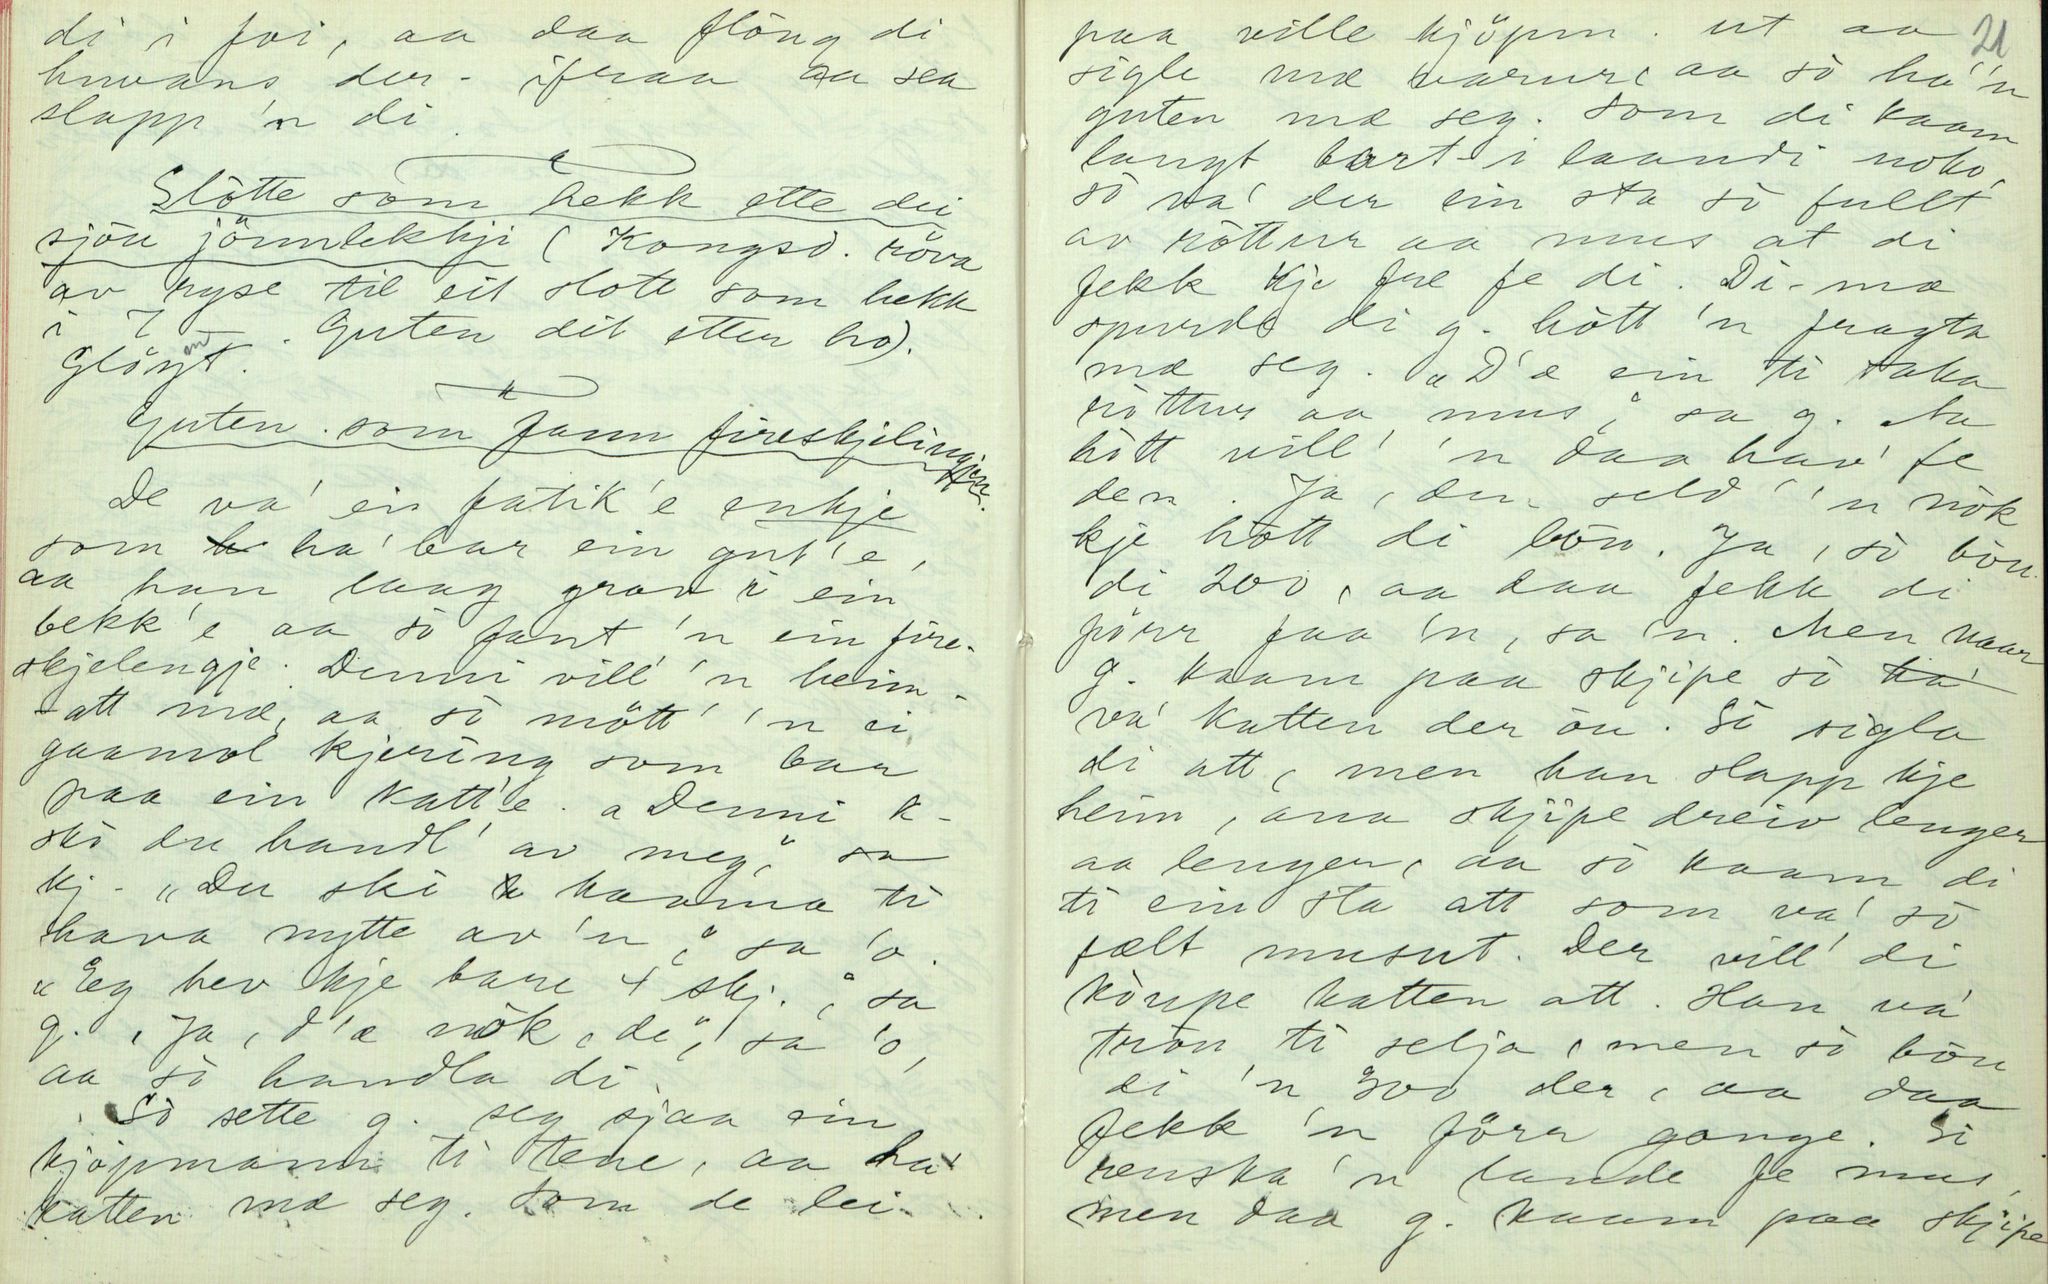 di i foi, aa daa flöug di
huvans der - ifraa aa sea
slapp 'n di.
Slötte som hekk ette dei
sjöu jönnlekkji (Kongsd. röva
av ryse til eit slott som hekk
i 7 . Guten dit etter ho).
Glöymt.
Guten som fann fireskjelingjen.
De va' ei fatik'e enkje
som ha' bar ein gut'e,
aa han laag grov i ein
bekk'e aa sò fant 'n ein fire-
skjelengje. Denni vill' 'n heim-
att mæ, aa sò mött' 'n ei
gaamol kjering som bar
paa ein katt'e. „Denni k-
skò du handl' av meg," sa
kj. „Du skò kaama ti
hava nytte av 'n," sa 'o.
„Eg hev kje bare 4 skj.," sa
g. „Ja, d'æ nòk, de", sa 'o,
aa sò handla di.
Sò sette g. seg sjaa ein
kjöpmann ti tene, aa ha'
katten mæ seg. Som de lei
21
paa ville kjöpm. ut aa
sigle mæ varur, aa sò ha' 'n
guten mæ seg. Som di kaam
langt bort i laandi noko,
sò va' der ein sta sò fullt
av röttur aa mus at di
fekk kje fre fe di. Di-mæ
spurde di g. hòtt 'n fragta
mæ seg. „D'æ ein ti taka
röttur aa mus," sa g. Aa
hòtt vill' 'n daa hav' fe
den. Ja, den seld' 'n nòk
kje hòtt di böu. Ja, sò böu
di 200, aa daa fekk di
förr faa 'n, sa 'n. Men naar
g. kaam paa skjipe sò
va' katten der òu. Sò sigla
di att, men han slapp kje
heim, ana skjipe dreiv lenger
aa lenger, aa sò kaam di
ti ein sta att som va' sò
fælt musut. Der vill' di
kòupe katten att. Han va'
tròu ti selja, men sò böu
di 'n 300 der, aa daa
fekk 'n förr gonge. Sò
renska 'n lande fe mus,
men daa g. kaam paa skjipe